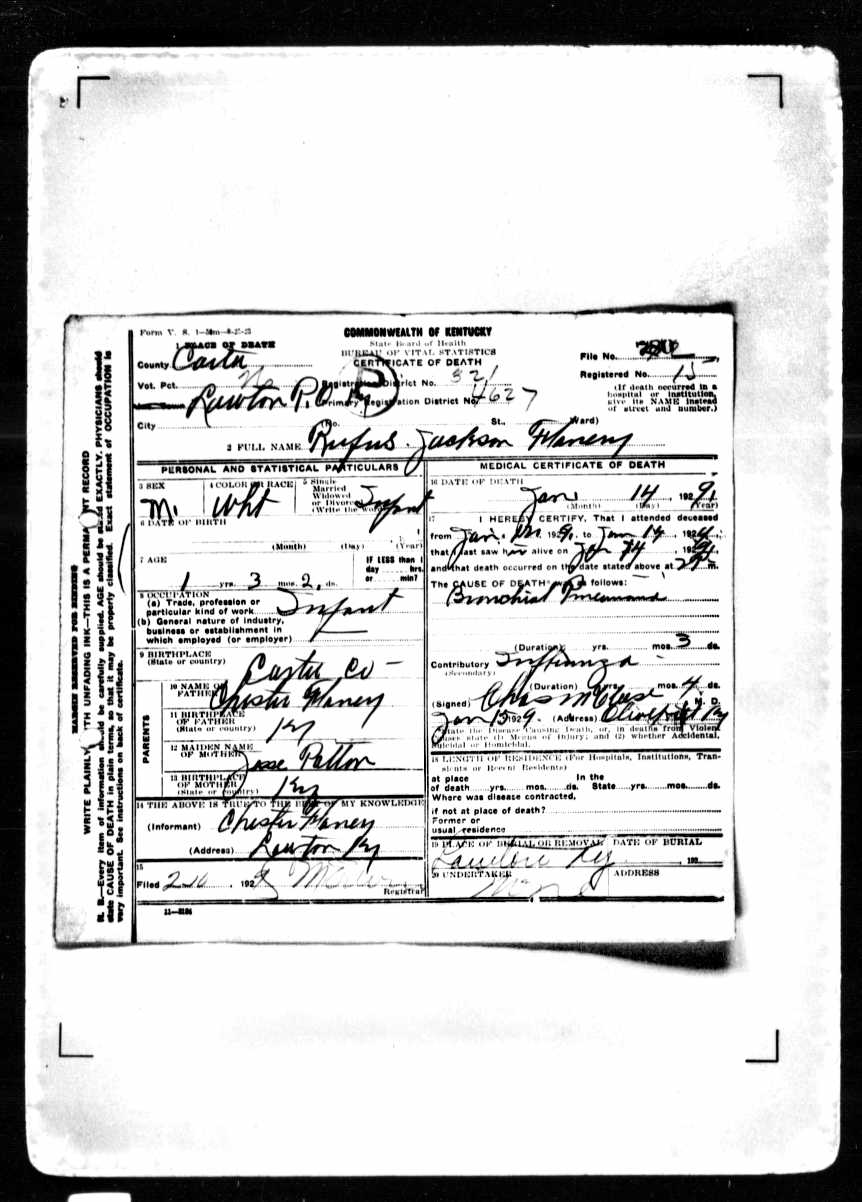 Form V. S. 1—50m—8-25-25
COMMONWEALTH OF KENTUCKY
State Board of Health
BUREAU OF VITAL STATISTICS
CERTIFICATE OF DEATH
1 PLACE OF DEATH
County Carter
Vot. Pct.
Lawton P.O.
City
Registration District No. 321
Primary Registration District No. 4627
(No. St., Ward)
File No.
Registered No. 15
(If death occurred in a
hospital or institution,
give its NAME instead
of street and number.)
2 FULL NAME Rufus Jackson Flaney
PERSONAL AND STATISTICAL PARTICULARS
3 SEX
M.
4 COLOR OR RACE
Wht
5 Single
Married
Widowed
or Divorced
(Write the word)
Infant
6 DATE OF BIRTH
(Month) (Day) (Year)
7 AGE
1 yrs. 3 mos. 2 ds.
IF LESS than 1
day hrs.
or min?
8 OCCUPATION
(a) Trade, profession or
particular kind of work Infant
(b) General nature of industry,
business or establishment in
which employed (or employer)
9 BIRTHPLACE
(State or country) Carter Co—
PARENTS
10 NAME OF
FATHER Chester Flaney
11 BIRTHPLACE
OF FATHER
(State or country) Ky
12 MAIDEN NAME
OF MOTHER Josse Patton
13 BIRTHPLACE
OF MOTHER
(State or country) Ky
14 THE ABOVE IS TRUE TO THE BEST OF MY KNOWLEDGE
(Informant) Chester Flaney
(Address) Lawton Ky
15
Filed 2 10 1929
Registrar
11—3184
MEDICAL CERTIFICATE OF DEATH
16 DATE OF DEATH
Jan 14 1929
(Month) (Day) (Year)
17 I HEREBY CERTIFY, That I attended deceased
from Jan. 1929, to Jan 14, 192
that I last saw him alive on Jan 14, 1929
and that death occurred on the date stated above at m.
The CAUSE OF DEATH* was as follows:
Bronchial Pneumonia
(Duration) yrs. mos. 3 ds.
Contributory Influenza
(Secondary)
(Duration) yrs. mos. 4 ds.
(Signed) Chas M M. D.
Jan 15 1929. (Address) Olive Hill Ky
*State the Disease Causing Death, or, in deaths from Violent
Causes state (1) Means of Injury; and (2) whether Accidental,
Suicidal or Homicidal.
18 LENGTH OF RESIDENCE (For Hospitals, Institutions, Tran-
sients or Recent Residents)
at place In the
of death yrs. mos. ds. State yrs. mos. ds.
Where was disease contracted,
if not at place of death?
Former or
usual residence
19 PLACE OF BURIAL OR REMOVAL
DATE OF BURIAL
Ky
192
20 UNDERTAKER
ADDRESS
MARGIN RESERVED FOR BINDING
WRITE PLAINLY, WITH UNFADING INK—THIS IS A PERMANENT RECORD
N. B.—Every item of information should be carefully supplied. AGE should be stated EXACTLY. PHYSICIANS should
state CAUSE OF DEATH in plain terms, so that it may be properly classified. Exact statement of OCCUPATION is
very important. See instructions on back of certificate.